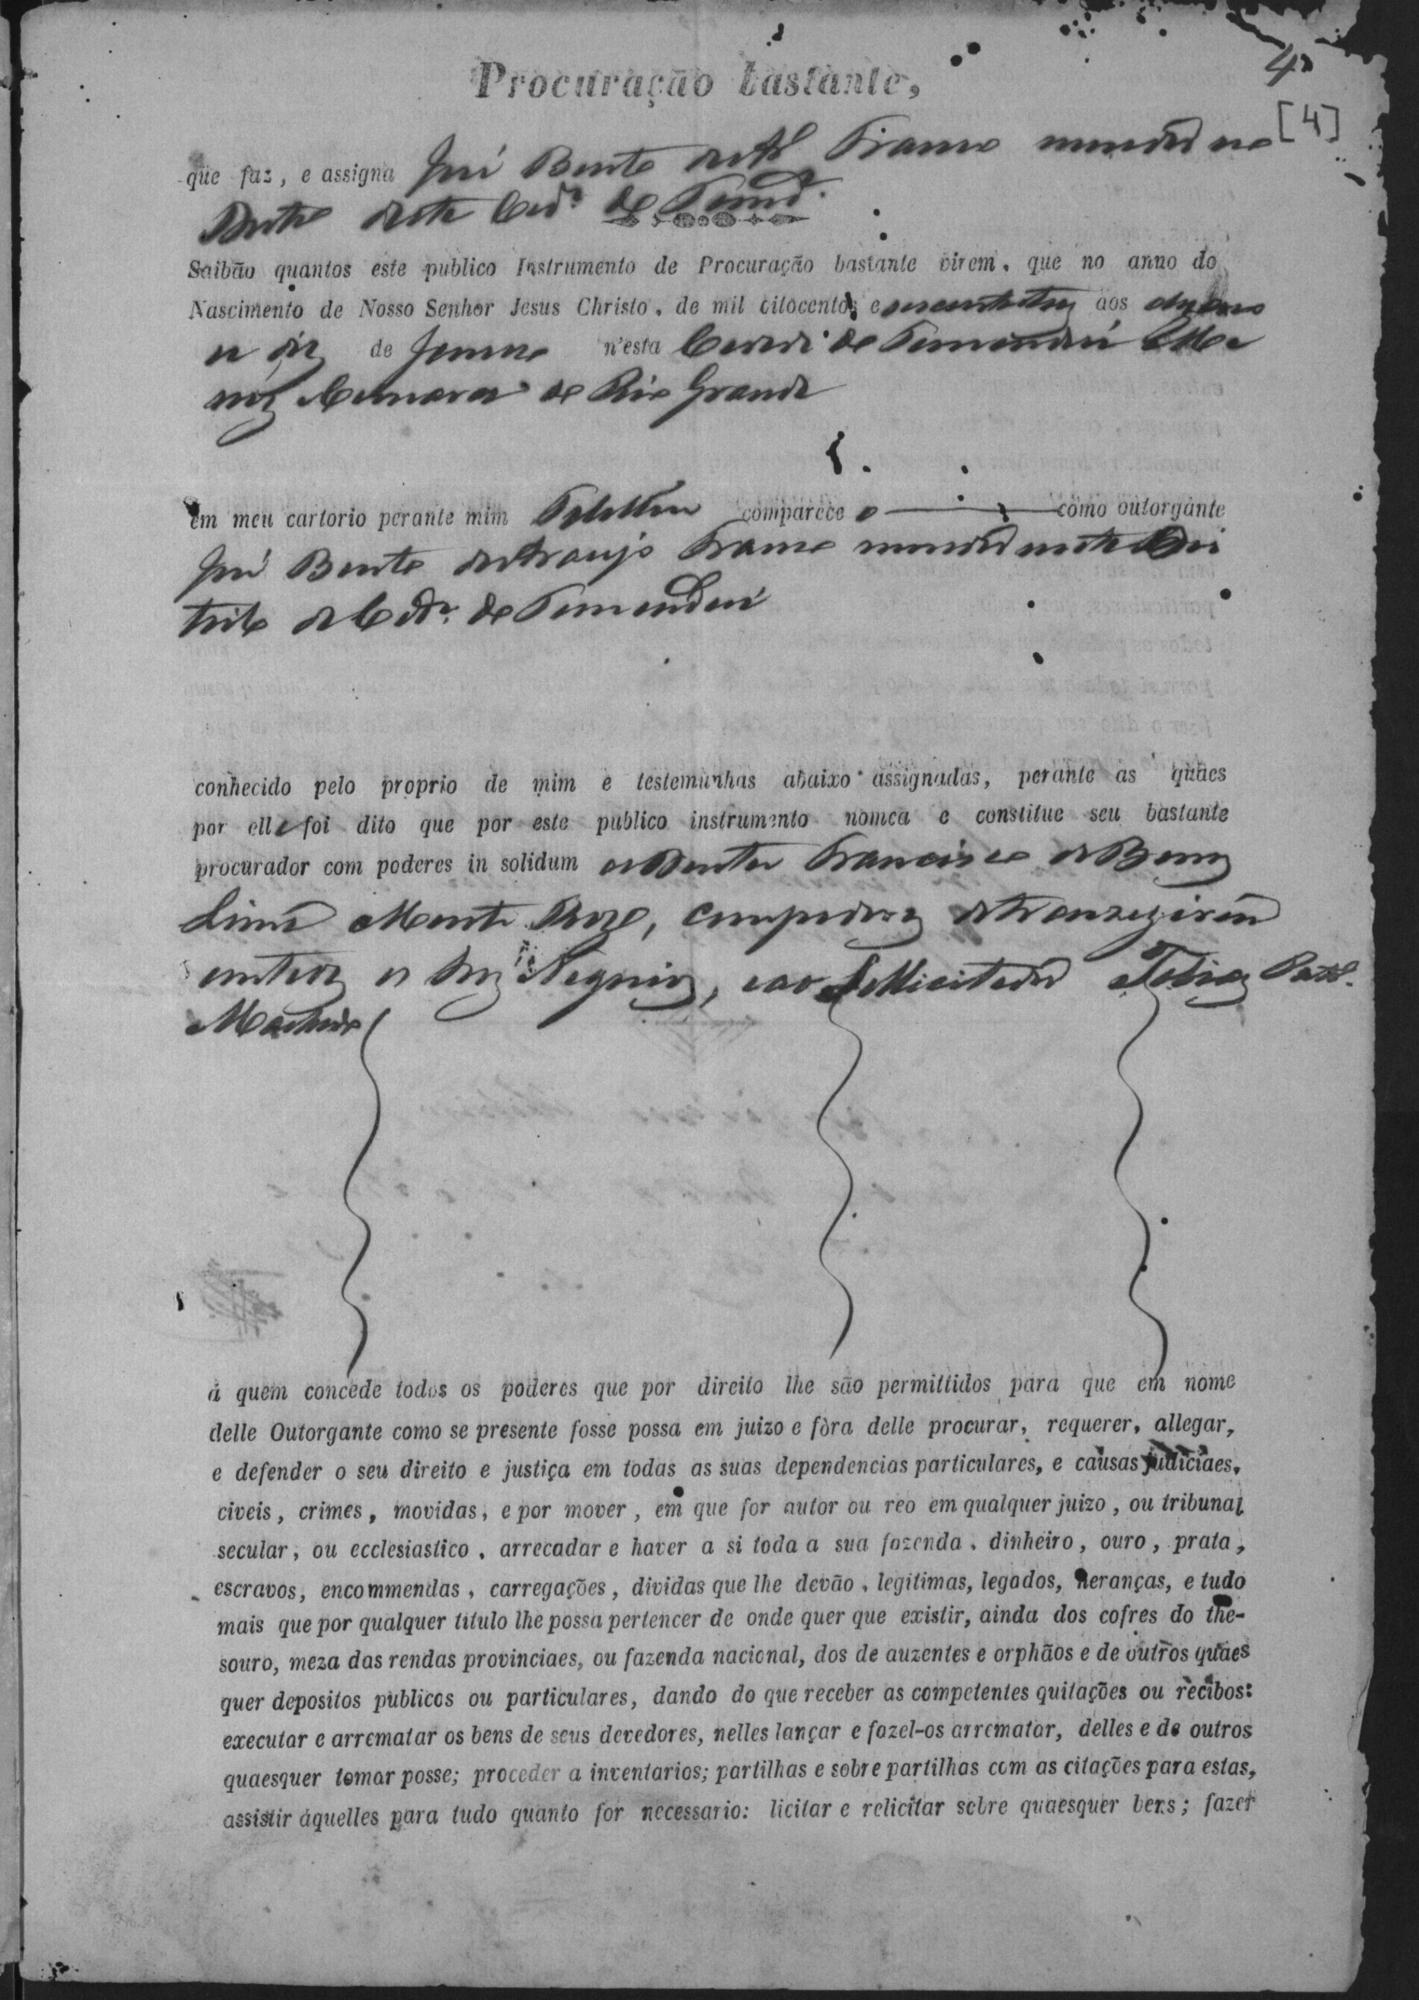 4
[4]
Procuração bastante,
que faz, e assigna José Bento de Ar.º Franco morador no
deste Cid.e de
Saibão quantos este publico Instrumento de Procuração bastante virem, que no anno do
Nascimento de Nosso Senhor Jesus Christo, de mil oitocentos e aos
de n'esta
Comarca do Rio Grande
em meu cartorio perante mim Tabellião comparece o como outorgante
José Bento de Araujo Franco morador neste Dis
tricto
conhecido pelo proprio de mim e testemunhas abaixo assignadas, perante as quaes
por elle foi dito que por este publico instrumento nomea e constitue seu bastante
procurador com poderes in solidum Francisco de
Lima Monte, com poderes
Negocios, e ao Sollicitador Tobias
Machado
á quem concede todos os poderes que por direito lhe são permittidos para que em nome
delle Outorgante como se presente fosse possa em juizo e fòra delle procurar, requerer, allegar,
e defender o seu direito e justiça em todas as suas dependencias particulares, e causas judiciaes,
civeis, crimes, movidas, e por mover, em que for autor ou reo em qualquer juizo, ou tribunal
secular, ou ecclesiastico, arrecadar e haver a si toda a sua fazenda, dinheiro, ouro, prata,
escravos, encommendas, carregações, dividas que lhe devão, legitimas, legados, heranças, e tudo
mais que por qualquer titulo lhe possa pertencer de onde quer que existir, ainda dos cofres do the-
souro, meza das rendas provinciaes, ou fazenda nacional, dos de auzentes e orphãos e de outros quaes
quer depositos publicos ou particulares, dando do que receber as competentes quitações ou recibos:
executar e arrematar os bens de seus devedores, nelles lançar e fazel-os arrematar, delles e de outros
quaesquer tomar posse; proceder a inventarios; partilhas e sobre partilhas com as citações para estas,
assistir áquelles para tudo quanto for necessario: licitar e relicitar sobre quaesquer bens; fazer